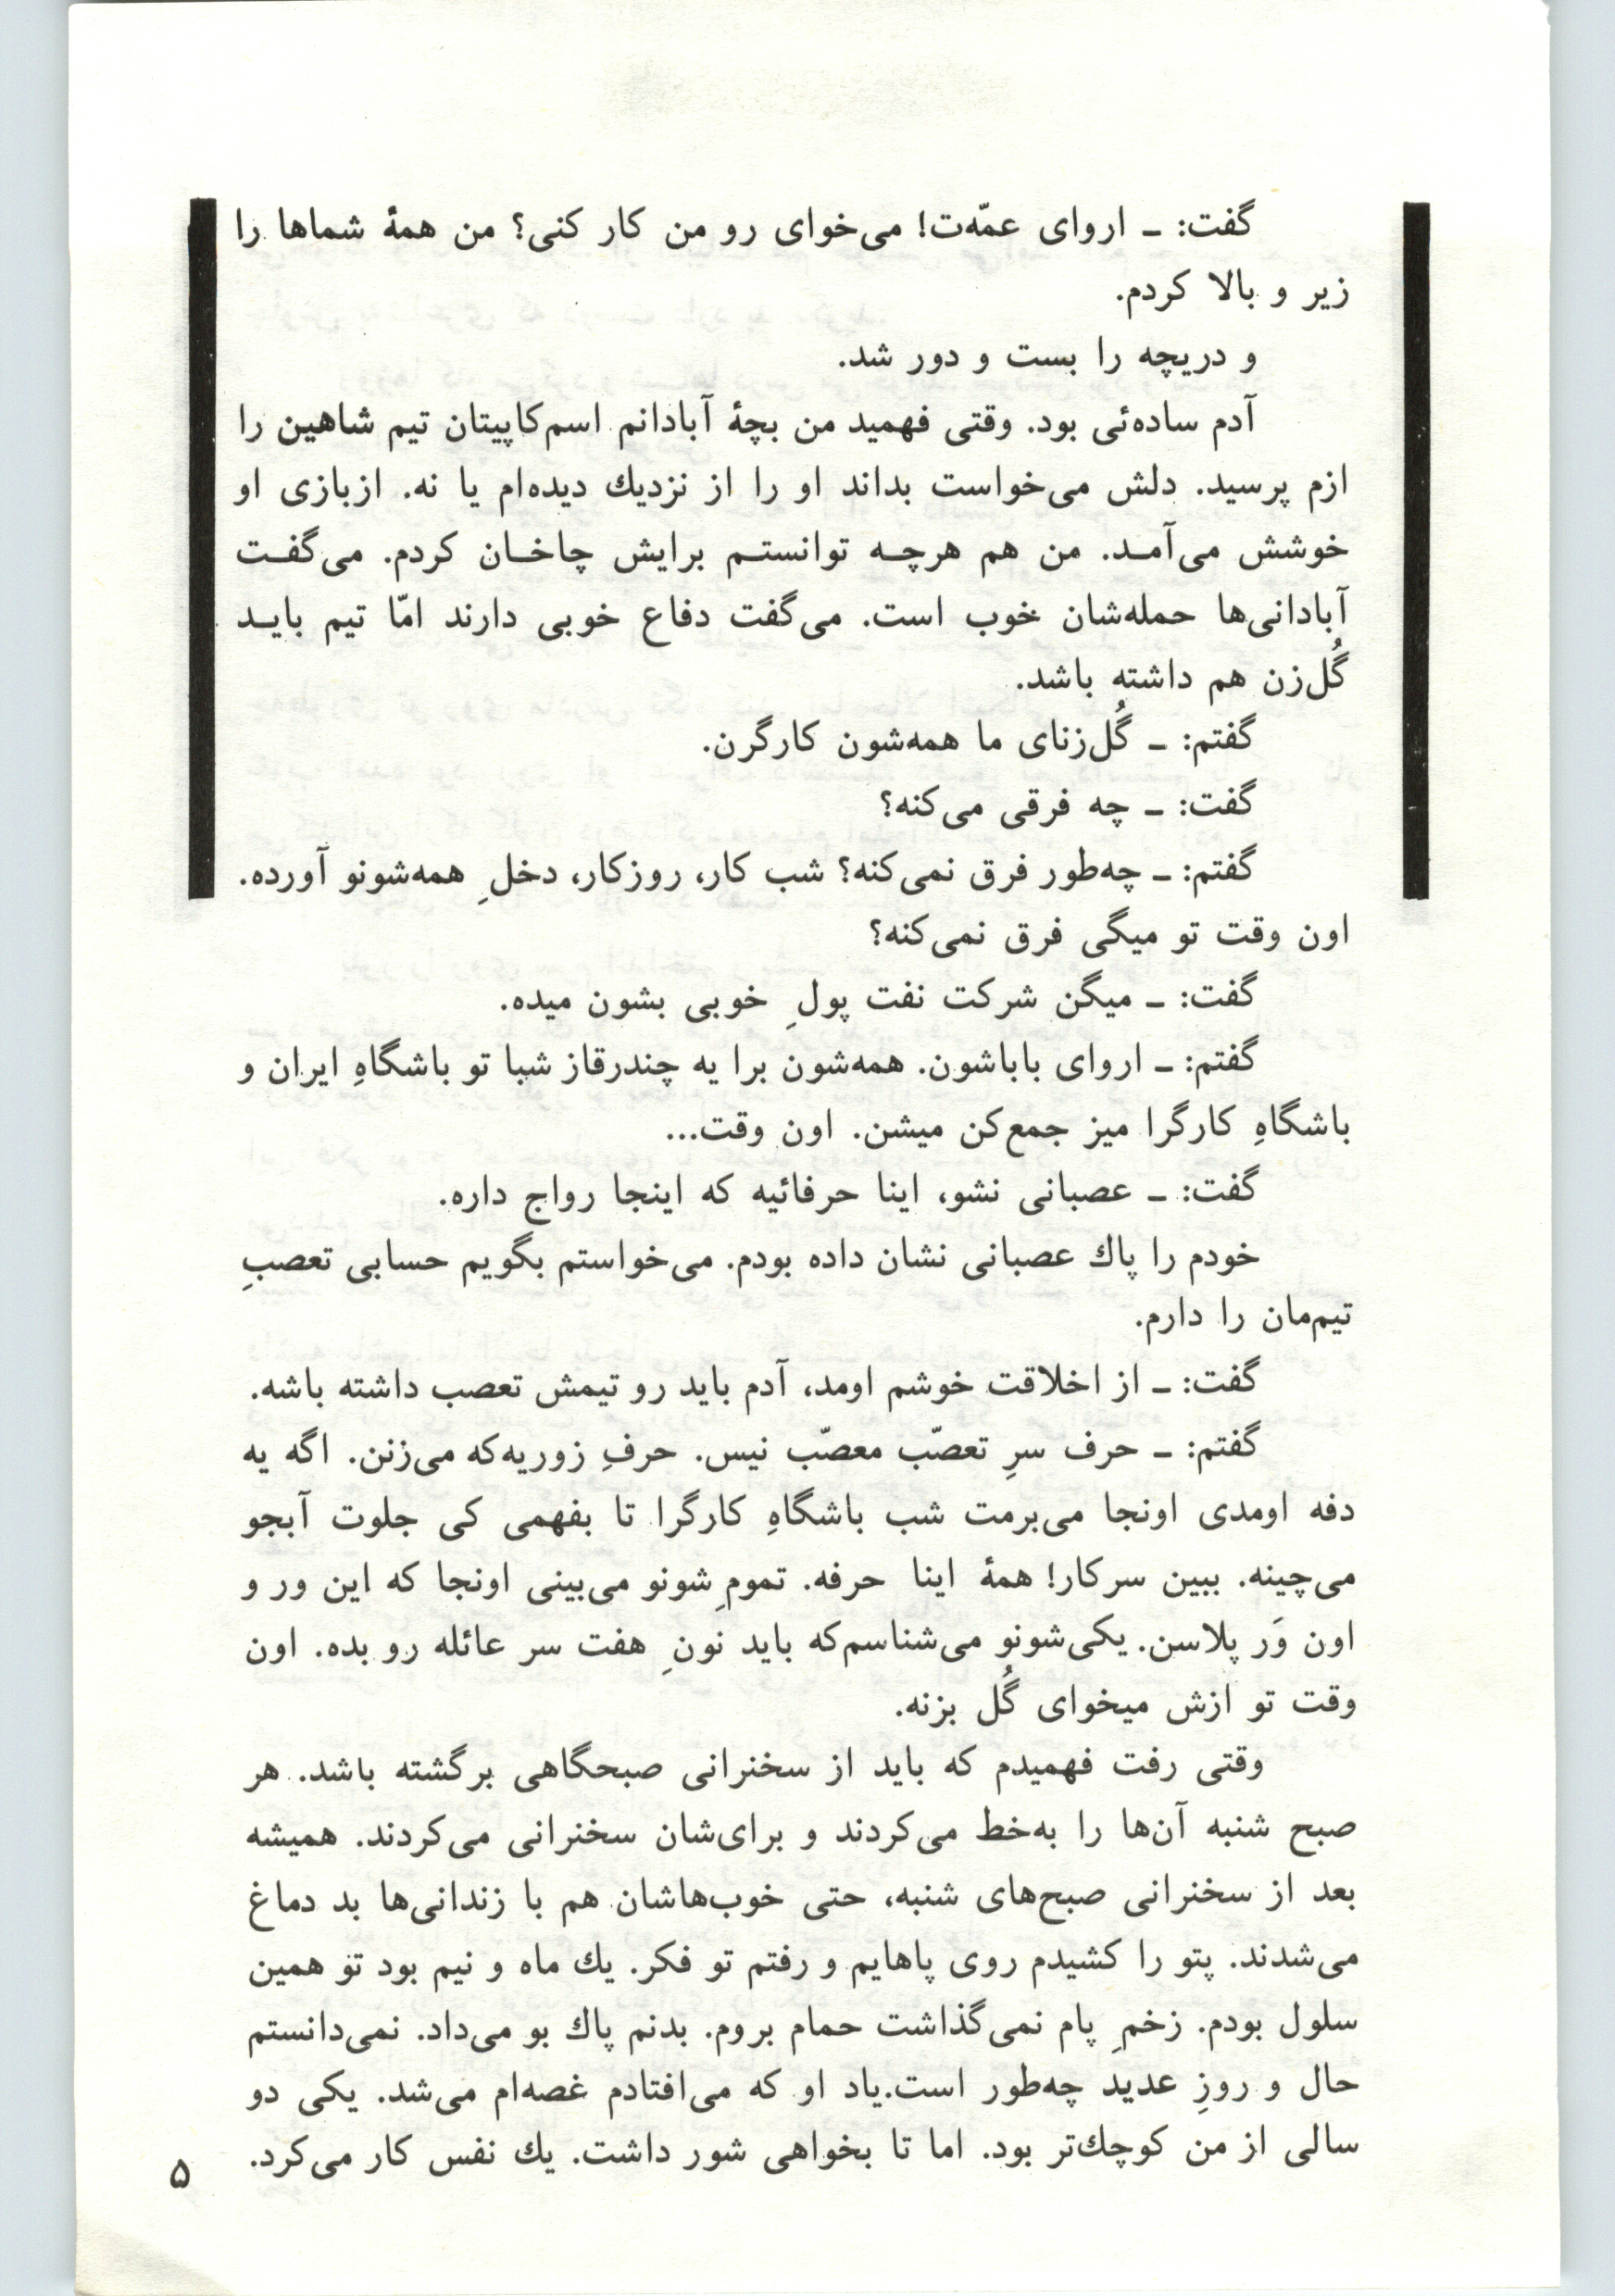 گفت: ـ اروای عمّه‌ت! می‌خوای رو من کار کنی؟ من همهٔ شماها را
زیر و بالا کردم.
و دریچه را بست و دور شد.
آدم ساده‌ئی بود. وقتی فهمید من بچهٔ آبادانم اسم‌کاپیتان تیم شاهین را
ازم پرسید. دلش می‌خواست بداند او را از نزدیك دیده‌ام یا نه. ازبازی او
خوشش می‌آمـد. من هم هرچـه توانستـم برایش چاخـان کردم. می‌گفـت
آبادانی‌ها حمله‌شان خوب است. می‌گفت دفاع خوبی دارند امّا تیم بایـد
گُل‌زن هم داشته باشد.
گفتم: ـ گُل‌زنای ما همه‌شون کارگرن.
گفت: ـ چه فرقی می‌کنه؟
گفتم: ـ چه‌طور فرق نمی‌کنه؟ شب کار، روزکار، دخلِ همه‌شونو آورده.
اون وقت تو میگی فرق نمی‌کنه؟
گفت: ـ میگن شرکت نفت پولِ خوبی بشون میده.
گفتم: ـ اروای باباشون. همه‌شون برا یه چندرقاز شبا تو باشگاهِ ایران و
باشگاهِ کارگرا میز جمع‌کن میشن. اون وقت...
گفت: ـ عصبانی نشو، اینا حرفائیه که اینجا رواج داره.
خودم را پاك عصبانی نشان داده بودم. می‌خواستم بگویم حسابی تعصبِ
تیم‌مان را دارم.
گفت: ـ از اخلاقت خوشم اومد، آدم باید رو تیمش تعصب داشته باشه.
گفتم: ـ حرف سرِ تعصّب معصّب نیس. حرفِ زوریه‌که می‌زنن. اگه یه
دفه اومدی اونجا می‌برمت شب باشگاهِ کارگرا تا بفهمی کی جلوت آبجو
می‌چینه. ببین سرکار! همهٔ اینا حرفه. تمومِ‌شونو می‌بینی اونجا که این ور و
اون وَر پلاسن. یکی‌شونو می‌شناسم‌که باید نونِ هفت سر عائله رو بده. اون
وقت تو ازش میخوای گُل بزنه.
وقتی رفت فهمیدم که باید از سخنرانی صبحگاهی برگشته باشد. هر
صبح شنبه آن‌ها را به‌خط می‌کردند و برای‌شان سخنرانی می‌کردند. همیشه
بعد از سخنرانی صبح‌های شنبه، حتی خوب‌هاشان هم با زندانی‌ها بد دماغ
می‌شدند. پتو را کشیدم روی پاهایم و رفتم تو فکر. یك ماه و نیم بود تو همین
سلول بودم. زخمِ پام نمی‌گذاشت حمام بروم. بدنم پاك بو می‌داد. نمی‌دانستم
حال و روزِ عدید چه‌طور است.یاد او که می‌افتادم غصه‌ام می‌شد. یکی دو
سالی از من کوچك‌تر بود. اما تا بخواهی شور داشت. یك نفس کار می‌کرد.
۵